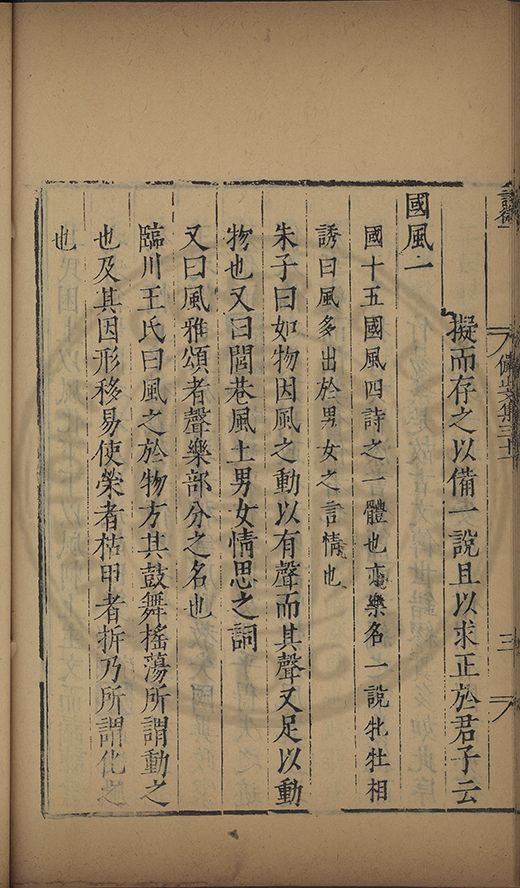 擬而存之以備一說且以求正於君子云
國風一
國十五國風四詩之一體也亦樂名一說牝牡相
誘曰風多出於男女之言情也
朱子曰如物因風之動以有聲而其聲又足以動
物也又曰閭巷風土男女情思之詞
又曰風雅頌者聲樂部分之名也
臨川王氏曰風之於物方其鼓舞搖蕩所謂動之
也及其因形移易使榮者枯甲者拆乃所謂化之
也
三